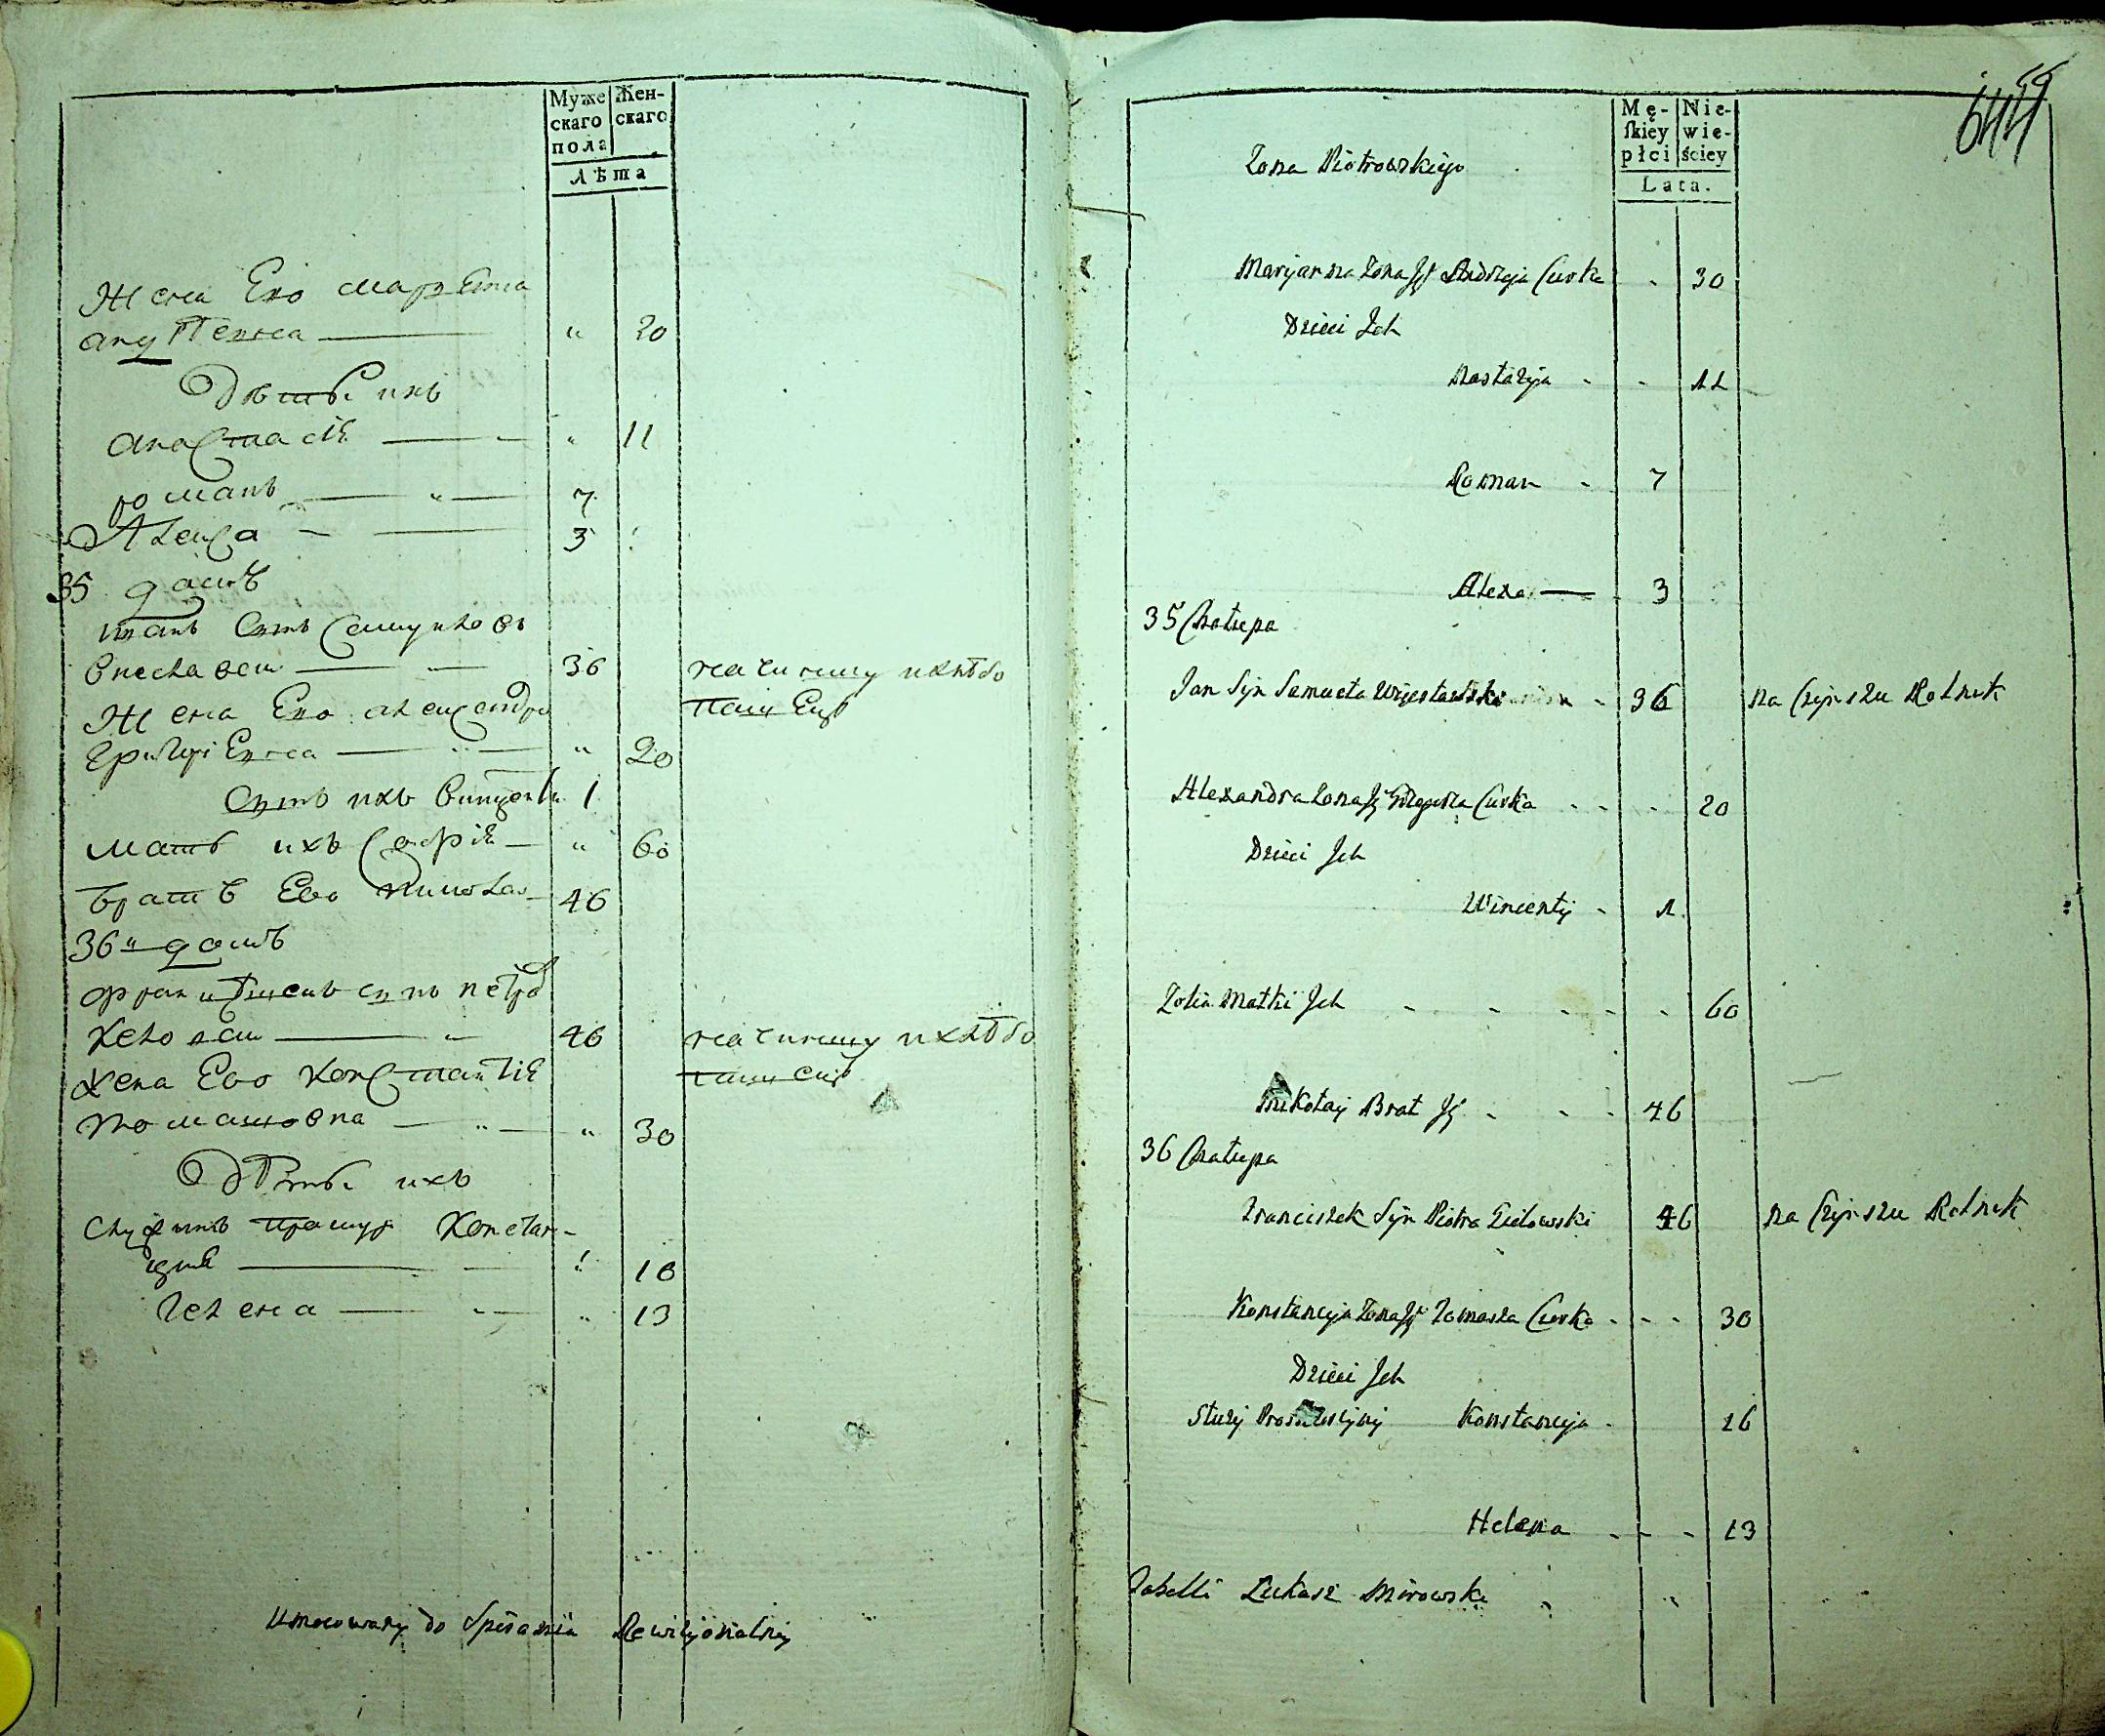 Муже
скаго
пола
Жен-
скаго
лѣта
Жена Его Марʼѣнна
андрѣевна " 20
Дѣти ихъ
Анастасіѣ " 11
романъ " 7
Алекса 3
35 домъ
иванъ сынъ Самуилов
внеславски 36 на чиншу ихлѣбо
Жена Его александра пашецъ
григріевна " 20
Сынъ ихъ винценти 1
мать ихъ Софіѣ " 60
братъ Ево николай 46
36 " домъ
францишекъ сынъ петра
келовски 46 на чиншу ихлѣбо
жена Ево констанціѣ пашецъ
томашовна " 30
Дѣти ихъ
служитъ Констан-
циѣ 16
гелена 13
Umocowany do Spisania Rewizyonalney
Mę-
skiey
płci
Nie-
wie-
ściey
Lata.
Żona Piotrowskiego
Maryanna Żona Jg° Andrzeja Curka 30
Dzieci Ich
Nastazya 11
Roman 7
Alexa 3
35 Chałupa
Jan Syn Samuela 36 na Czynszu Rolnik
Alexandra Żona Jg° Grzegorza Curka 20
Dzieci Ich
Wincenty 1
Zofia Matka Ich 60
Mikołay Brat Jg° 46
36 Chałupa
Franciszek Syn Piotra Kielowski 46 na Czynszu Rolnik
Konstancya Żona Jg° Tomasza Curka 30
Dzieci Ich
Służy Konstancya 16
Helena 13
Tabelli Łukasz Mirowski